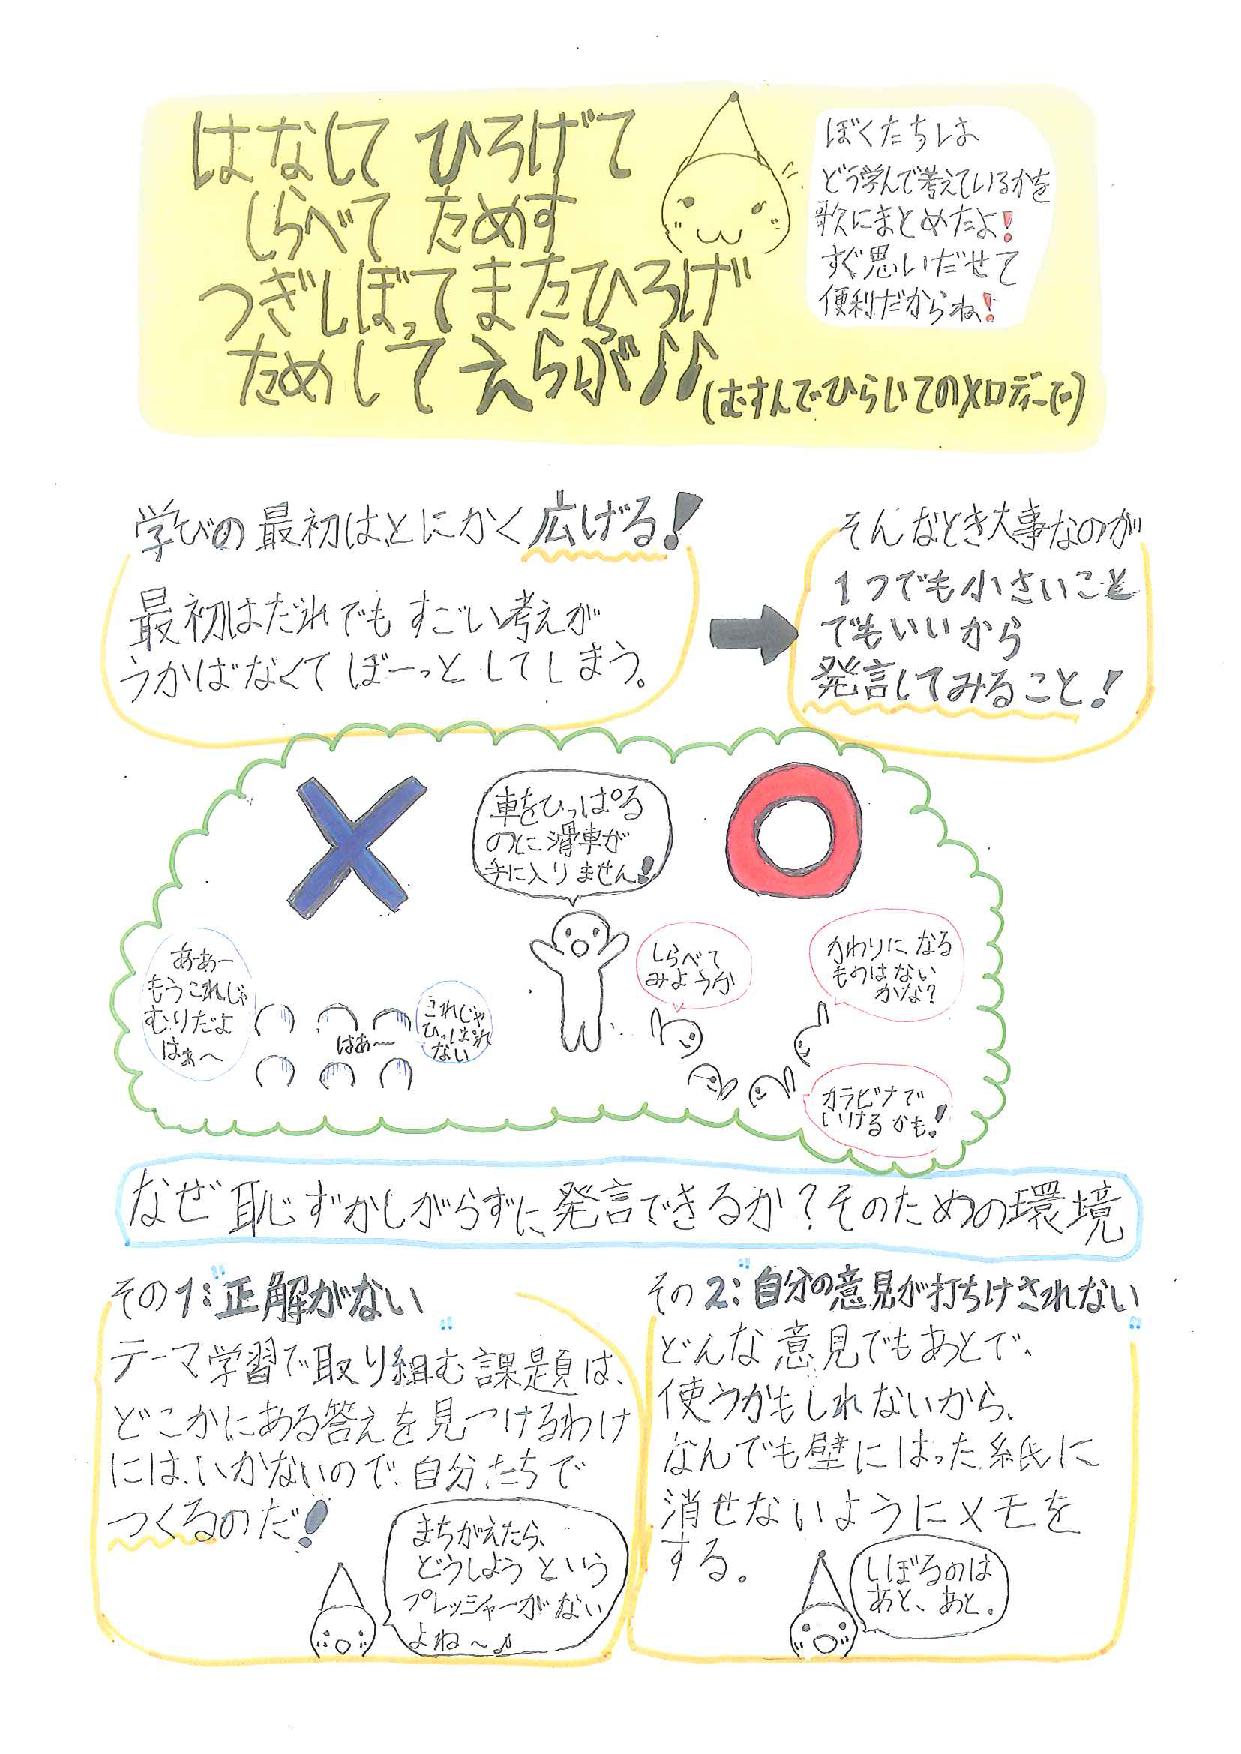 はなして ひろげて
しらべて ためす
つぎしぼってまたひろげ
ためして えらぶ♪♪
(むすんでひらいてのメロディーで)
ぼくたちは
どう学んで考えているかを
歌にまとめたよ!
すぐ思いだせて
便利だからね!
学びの最初はとにかく広げる!
最初はだれでもすごい考えが
うかばなくてぼーっとしてしまう。
そんなとき大事なのが
1つでも小さいこと
でもいいから
発言してみること!
車をひっぱる
のに滑車が
手に入りません!
ああー
もうこれじゃ
むりだよ
はぁ〜
はあ〜
これじゃ
ひっぱれ
ない
しらべて
みようか
かわりになる
ものはない
かな?
カラビナで
いけるかも!
なぜ恥ずかしがらずに発言できるか?そのための環境
その1:"正解がない"
テーマ学習で取り組む課題は、
どこかにある答えを見つけるわけ
には、いかないので、自分たちで
つくるのだ!
まちがえたら、
どうしようという
プレッシャーがない
よね〜♪
その2:"自分の意見が打ちけされない"
どんな意見でもあとで、
使うかもしれないから、
なんでも壁にはった紙に
消せないようにメモを
する。
しぼるのは
あと、あと。